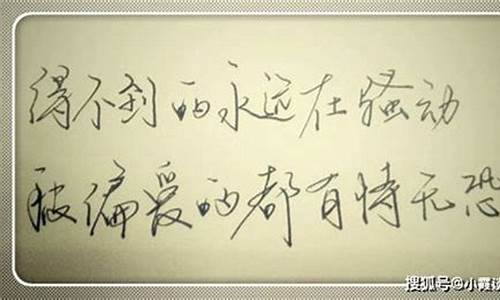 得不到的永远在骚动
被偏爱的都有恃无恐
搜狐号@小霞